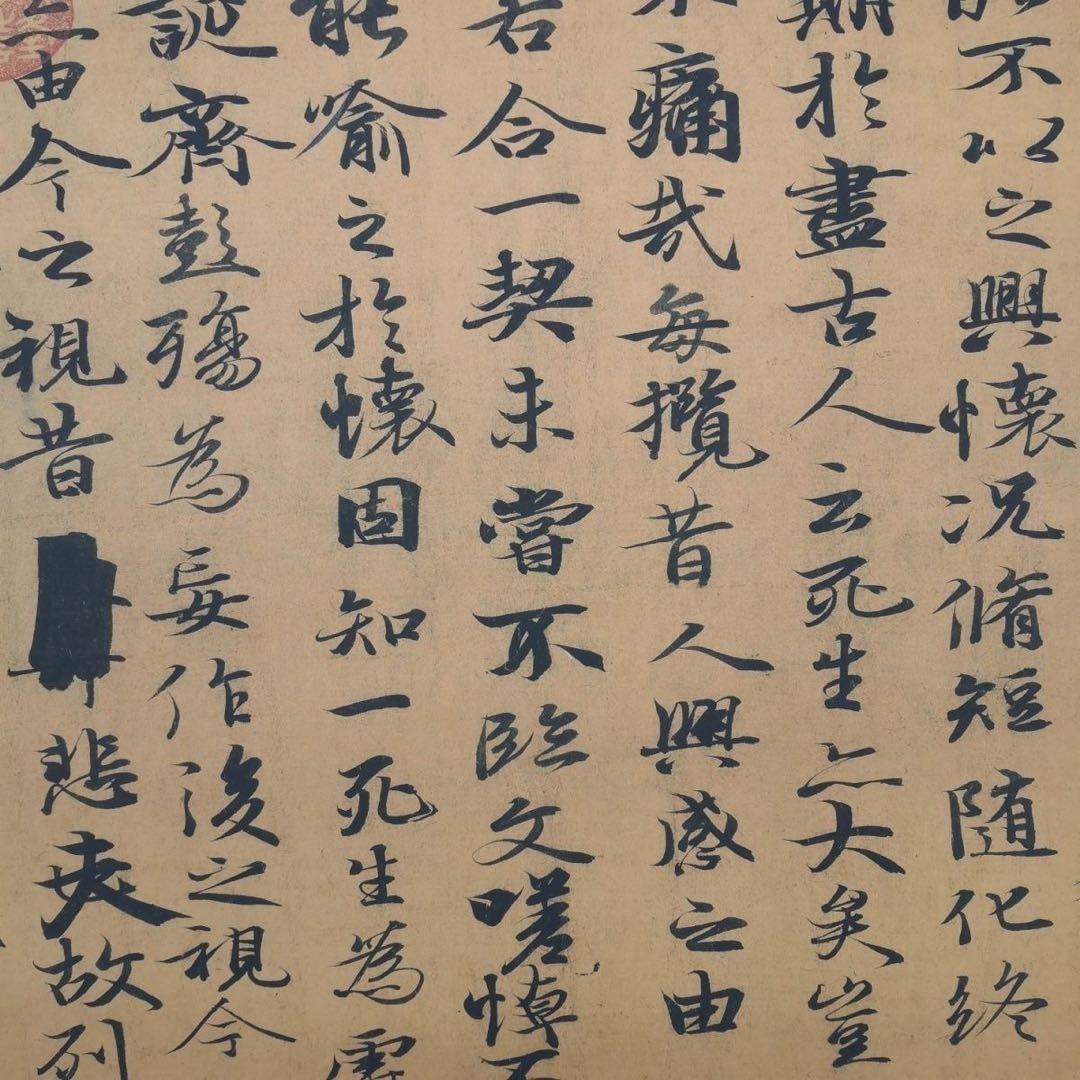 能不以之興懷況脩短隨化終
期於盡古人云死生亦大矣豈
不痛哉每攬昔人興感之由
若合一契未嘗不臨文嗟悼不
能喻之於懷固知一死生為虛
誕齊彭殤為妄作後之視今
亦由今之視昔悲夫故列